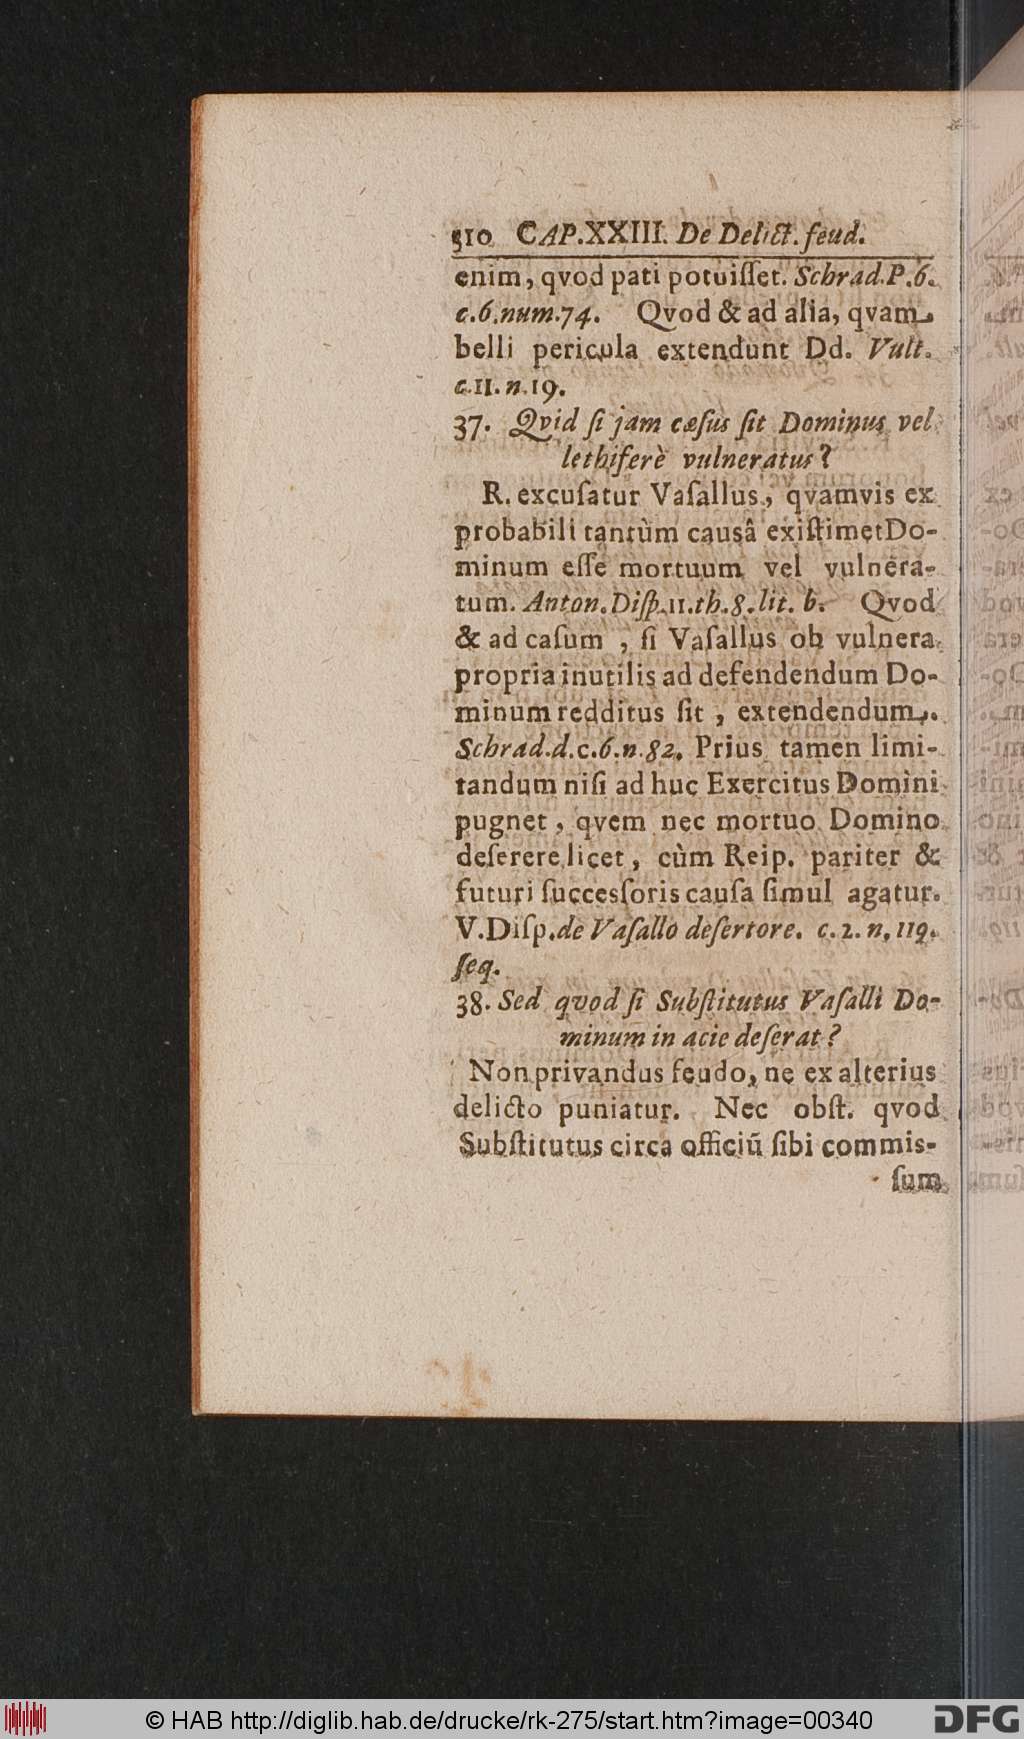 510 CAP.XXIII. De Delict. feud.
enim, qvod pati potuiſſet. Schrad.P.6.
c.6.num.74. Qvod & ad alia, qvam
belli pericula extendunt Dd. Vult.
c.11.n.19.
37. Qvid ſi jam cæſus ſit Dominus vel
lethiferè vulneratus?
R. excuſatur Vaſallus, qvamvis ex
probabili tantùm causâ exiſtimet Do-
minum eſſe mortuum vel vulnera-
tum. Anton.Diſp.11.th.8.lit. b. Qvod
& ad caſum , ſi Vaſallus ob vulnera
propria inutilis ad defendendum Do-
minum redditus ſit , extendendum.
Schrad.d.c.6.n.82. Prius tamen limi-
tandum niſi ad huc Exercitus Domini
pugnet , qvem nec mortuo Domino
deſerere licet , cùm Reip. pariter &
futuri ſuccesſoris cauſa ſimul agatur.
V.Diſp.de Vaſallo deſertore. c.2.n.119.
ſeq.
38. Sed qvod ſi Subſtitutus Vaſalli Do-
minum in acie deſerat?
Non privandus feudo, ne ex alterius
delicto puniatur. Nec obſt. qvod
Subſtitutus circa officiũ ſibi commis-
ſum
© HAB http://diglib.hab.de/drucke/rk-275/start.htm?image=00340
DFG